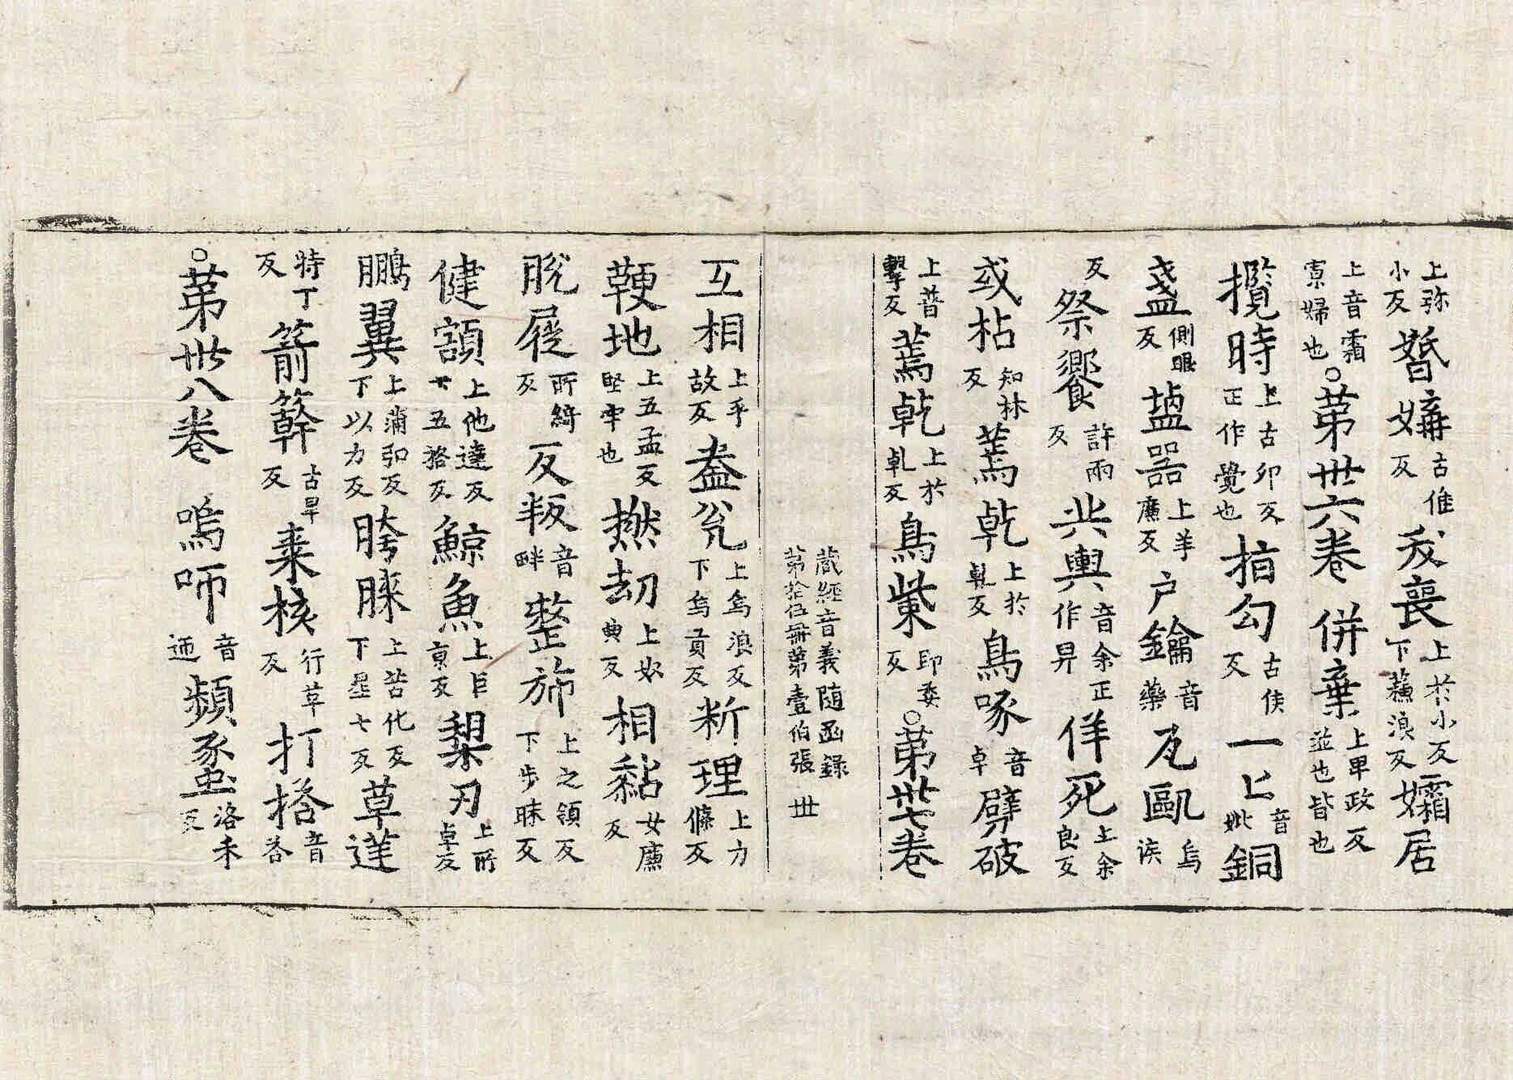 上弥小反㬱媾古候反我喪上扵小反下蘓浪反孀居
上音霜寡婦也○苐卅六卷併棄上畢政反並也皆也
攬時上古卯反正作覺也拍勾古侯反一上音妣銅
盞側眼反塭器上羊廉反户鑰音藥瓦甌烏侯
反祭饗許兩反㳟輿音余正作舁佯死上余良反
或枯知林反蔫乹上扵䖍反鳥啄音卓劈破
上普擊反蔫乾上扵乹反鳥觜即委反○苐卅七卷
藏經音義隨函録
苐拾伍冊苐壹伯張 卌
互相上乎故反盎瓮上烏浪反下烏貢反断理上力條反
鞕地上五孟反堅牢也撚刧上奴典反相黏女廉反
脫屣所綺反反叛音畔整斾上之領反下步昧反
健額上他達反下五狢反鯨魚上巨京反槊刃上所卓反
鵬翼上蒲弘反下以力反胯䐑上苦化反下星七反草莛
特丁反箭簳古旱反棗核行革反打㧺音荅
○苐卅八卷 鳴哂音迊頻螺洛禾反